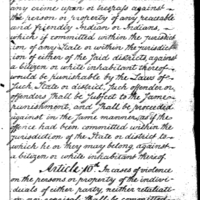 any crime upon or trespass against
the person or property of any peaceable
and friendly Indian or Indians,
which if committed within the jurisdiction
of any State or within the jurisdiction
of either of the said districts, against
a citizen or white inhabitant thereof
would be punishable by the Laws of
such State or district, such offender or
offenders shall be subject to the same
punishment, and shall be proceeded
against in the same manner, as if the
offence had been committed within the
jurisdiction of the State or district to
which he or they may belong, against
a citizen or white inhabitant thereof.
Article 10th. In cases of violence
on the persons or property of the indivi-
duals of either party, neither retaliati-
on nor reprisal shall be committed